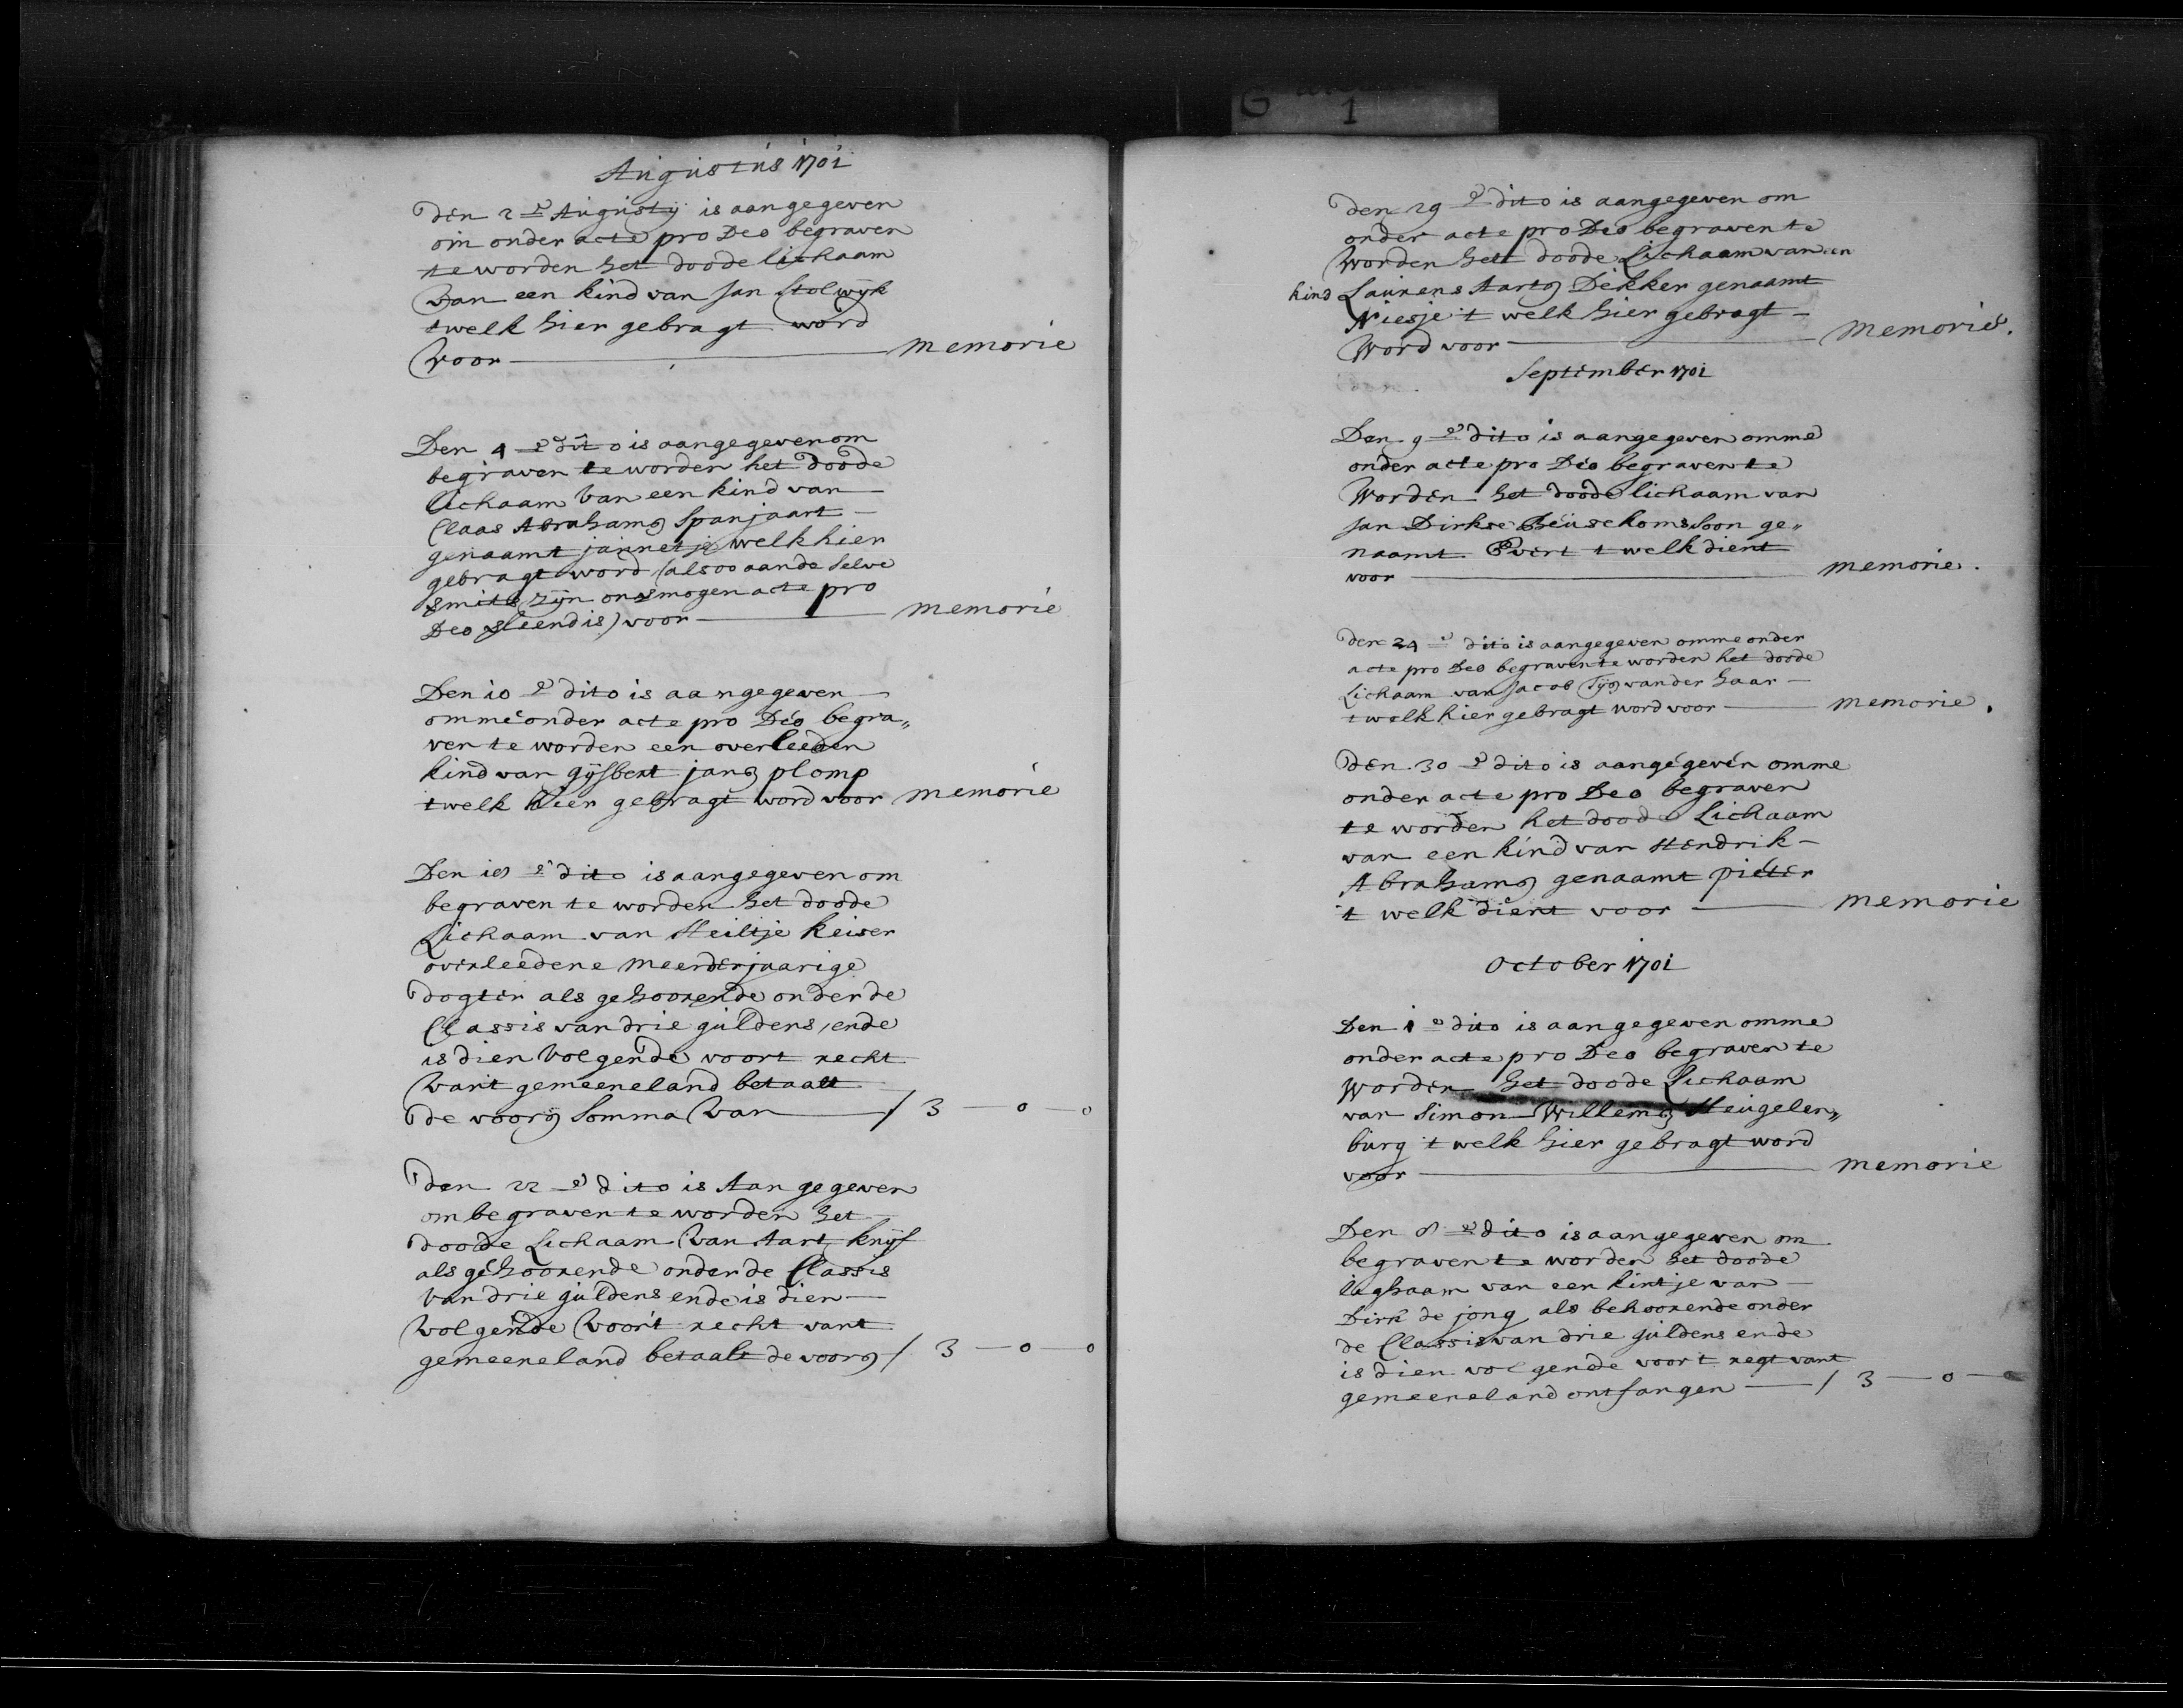 Augustus 1701
Den 2e Augustij is aangegeven
om onder acte pro Deo begraven
te worden het doode lichaam
van een kind van Jan Stolwijk
twelk hier gebragt word
voor memorie
Den 4e dito is aangegeven om
begraven te worden het doode
lichaam van een kind van
Claas Abrahams Spanjaart
genaamt jannetje welk hier
gebragt word (alsoo aande selve
smits zijn onvermogen acte pro
Deo sleendis) voor memorie
Den 10e dito is aangegeven
omme onder acte pro Deo begra„
ven te worden een overleeden
kind van gijsbert jans plomp
twelk hier gebragt word voor memorie
Den 18e dito is aangegeven om
begraven te worden het doode
Lichaam van Heiltje Keiser
overleedene meerderjaarige
dogter als gehoorende onder de
Classis van drie guldens, ende
is dien volgende voort recht
vant gemeeneland betaalt
de voors somma van ƒ 3 — 0 — 0
Den 22e dito is Aangegeven
om begraven te worden het
doode Lichaam van Aart Knijf
als gehoorende onder de Classis
van drie guldens ende is dien
volgende voort recht vant
gemeeneland betaalt de voors ƒ 3 — 0 — 0
G
1
Den 29e dito is aangegeven om
onder acte pro Deo begraven te
worden hett doode Lichaam van een
kind Laurens Aarts Dekker genaamt
Niesje t welk hier gebragt
word voor memorie.
September 1701
Den 9e dito is aangegeven omme
onder acte pro Deo begraven te
worden het doode lichaam van
Jan Dirkse Beusekoms Soon ge„
naamt Evert t welk dient
voor memorie.
Den 24e dito is aangegeven omme onder
acte pro Deo begraven te worden het doode
Lichaam van Jacob Tijs vander haar
twelk hier gebragt word voor memorie.
Den 30e dito is aangegeven omme
onder acte pro Deo begraven
te worden het doode Lichaam
van een kind van Hendrik
Abrahams genaamt pieter
t welk dient voor memorie
October 1701
Den 1e dito is aangegeven omme
onder acte pro Deo begraven te
worden het doode Lichaam
van Simon Willems Heugelen„
burg t welk hier gebragt word
voor memorie
Den 8e dito is aangegeven om
begraven te worden het doode
lighaam van een kintje van
Dirk de jong als behoorende onder
de Classis van drie guldens ende
is dien volgende voort regt vant
gemeeneland ontfangen ƒ 3 — 0 — 0